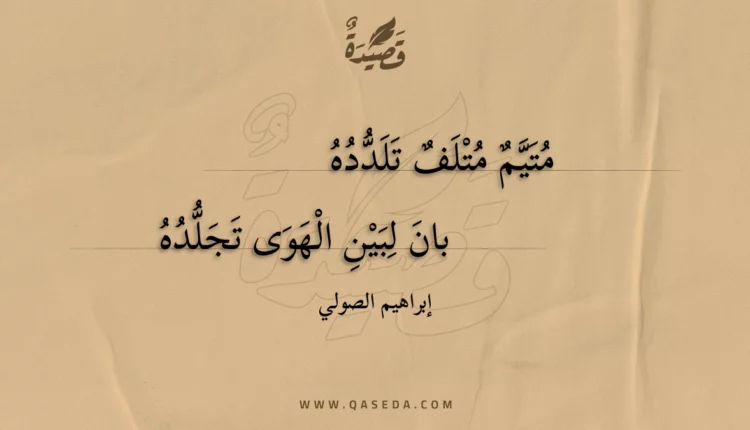 قَصِيدَةٌ
مُتَيَّمٌ مُتْلَفٌ تَلَدُّدُهُ
بانَ لِبَيْنِ الْهَوَى تَجَلُّدُهُ
إبراهيم الصولي
WWW.QASEDA.COM